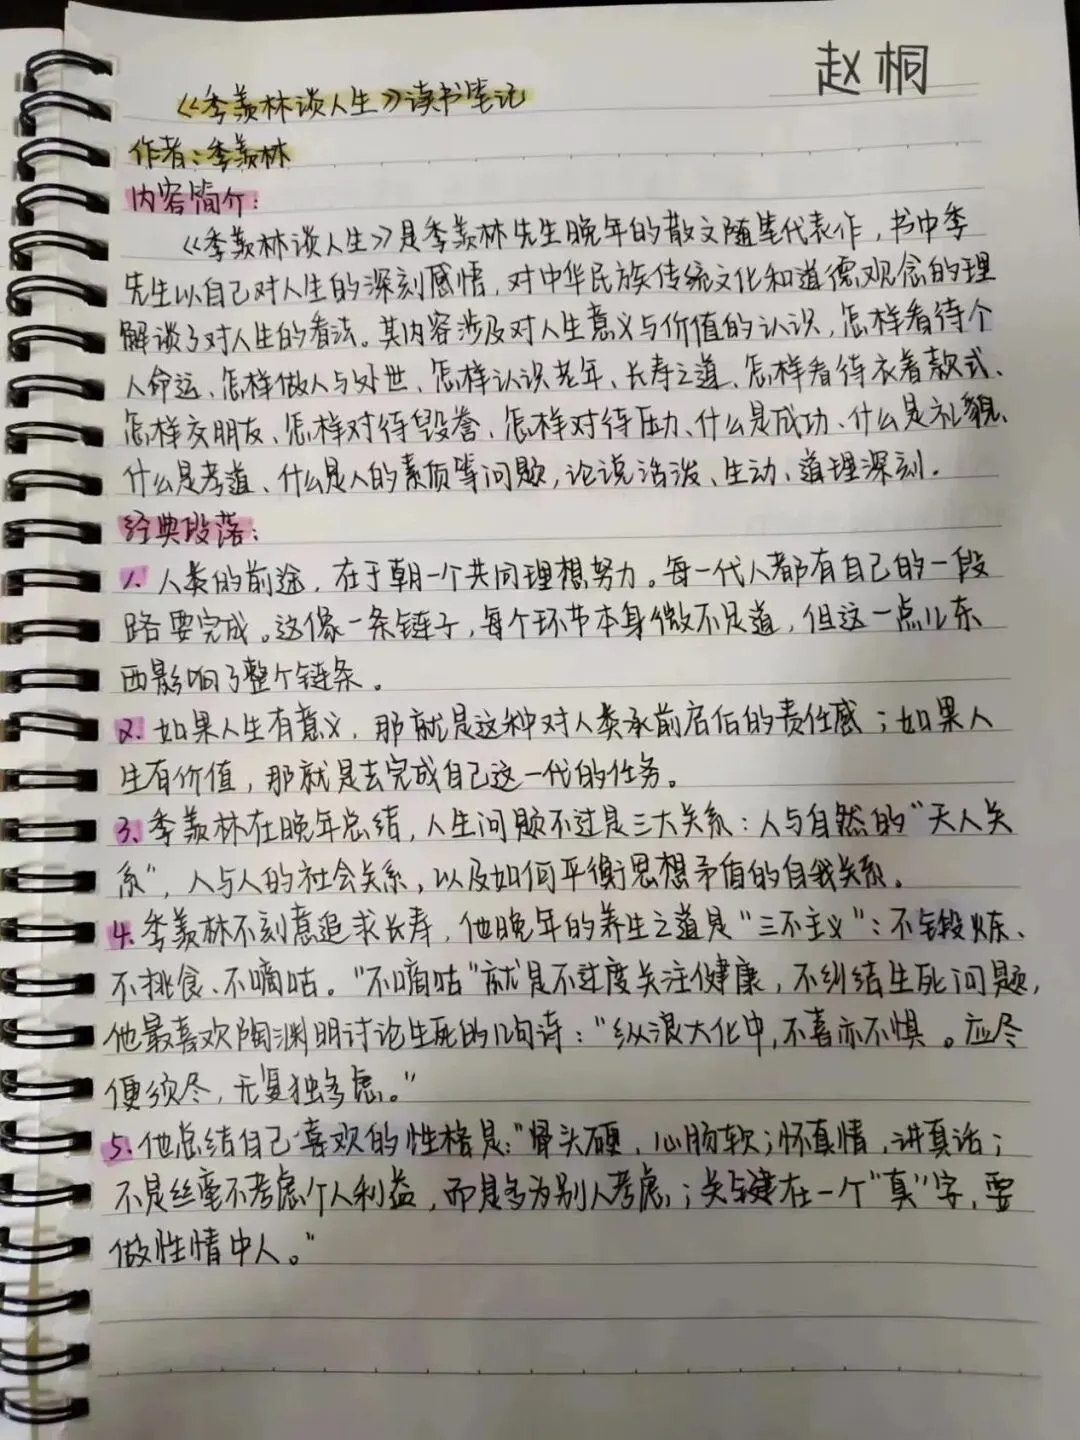 赵桐
《季羡林谈人生》读书笔记
作者：季羡林
内容简介：
《季羡林谈人生》是季羡林先生晚年的散文随笔代表作，书中季
先生以自己对人生的深刻感悟，对中华民族传统文化和道德观念的理
解谈了对人生的看法。其内容涉及对人生意义与价值的认识，怎样看待个
人命运、怎样做人与处世、怎样认识老年、长寿之道、怎样看待衣着款式、
怎样交朋友、怎样对待毁誉、怎样对待压力、什么是成功、什么是礼貌、
什么是孝道、什么是人的素质等问题，论说活泼、生动、道理深刻.
经典段落：
1. 人类的前途，在于朝一个共同理想努力。每一代人都有自己的一段
路要完成。这像一条链子，每个环节本身微不足道，但这一点儿东
西影响了整个链条。
2. 如果人生有意义，那就是这种对人类承前启后的责任感；如果人
生有价值，那就是去完成自己这一代的任务。
3. 季羡林在晚年总结，人生问题不过是三大关系：人与自然的“天人关
系”，人与人的社会关系，以及如何平衡思想矛盾的自我关系。
4. 季羡林不刻意追求长寿，他晚年的养生之道是“三不主义”：不锻炼、
不挑食、不嘀咕。“不嘀咕”就是不过度关注健康，不纠结生死问题，
他最喜欢陶渊明讨论生死的几句诗：“纵浪大化中，不喜亦不惧。应尽
便须尽，无复独多虑。”
5. 他总结自己喜欢的性格是：“骨头硬，心肠软；怀真情，讲真话；
不是丝毫不考虑个人利益，而是多为别人考虑；关键在一个“真”字，要
做性情中人。”